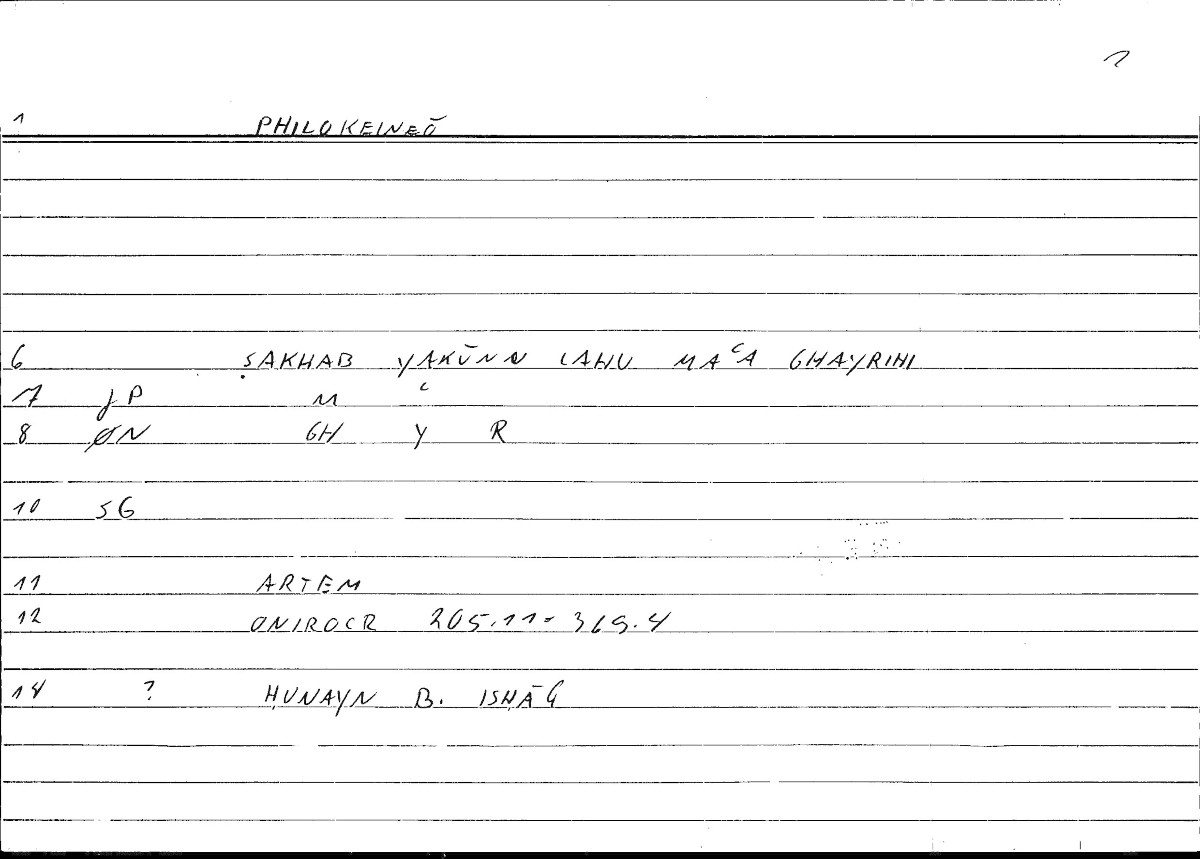 1
1 PHILOKEINEŌ
6 ṢAKHAB YAKŪNU LAHU MAʿA GHAYRIHI
7 JP M ʿ
8 ØN GH Y R
10 SG
11 ARTEM
12 ONIROCR 205.11 = 369.4
14 ? ḤUNAYN B. ISḤĀQ